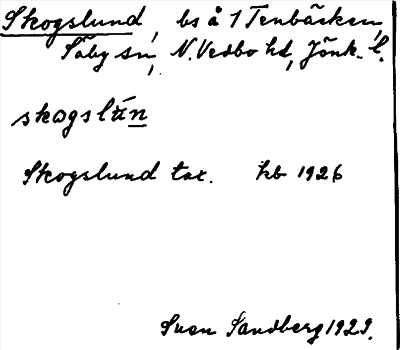 Skogslund, bs å 1 Tenbäcken,
Säby sn, N. Vedbo hd, Jönk. l.
skogslùn
Skogslund tax. hb 1926
Sven Sandberg 1929.